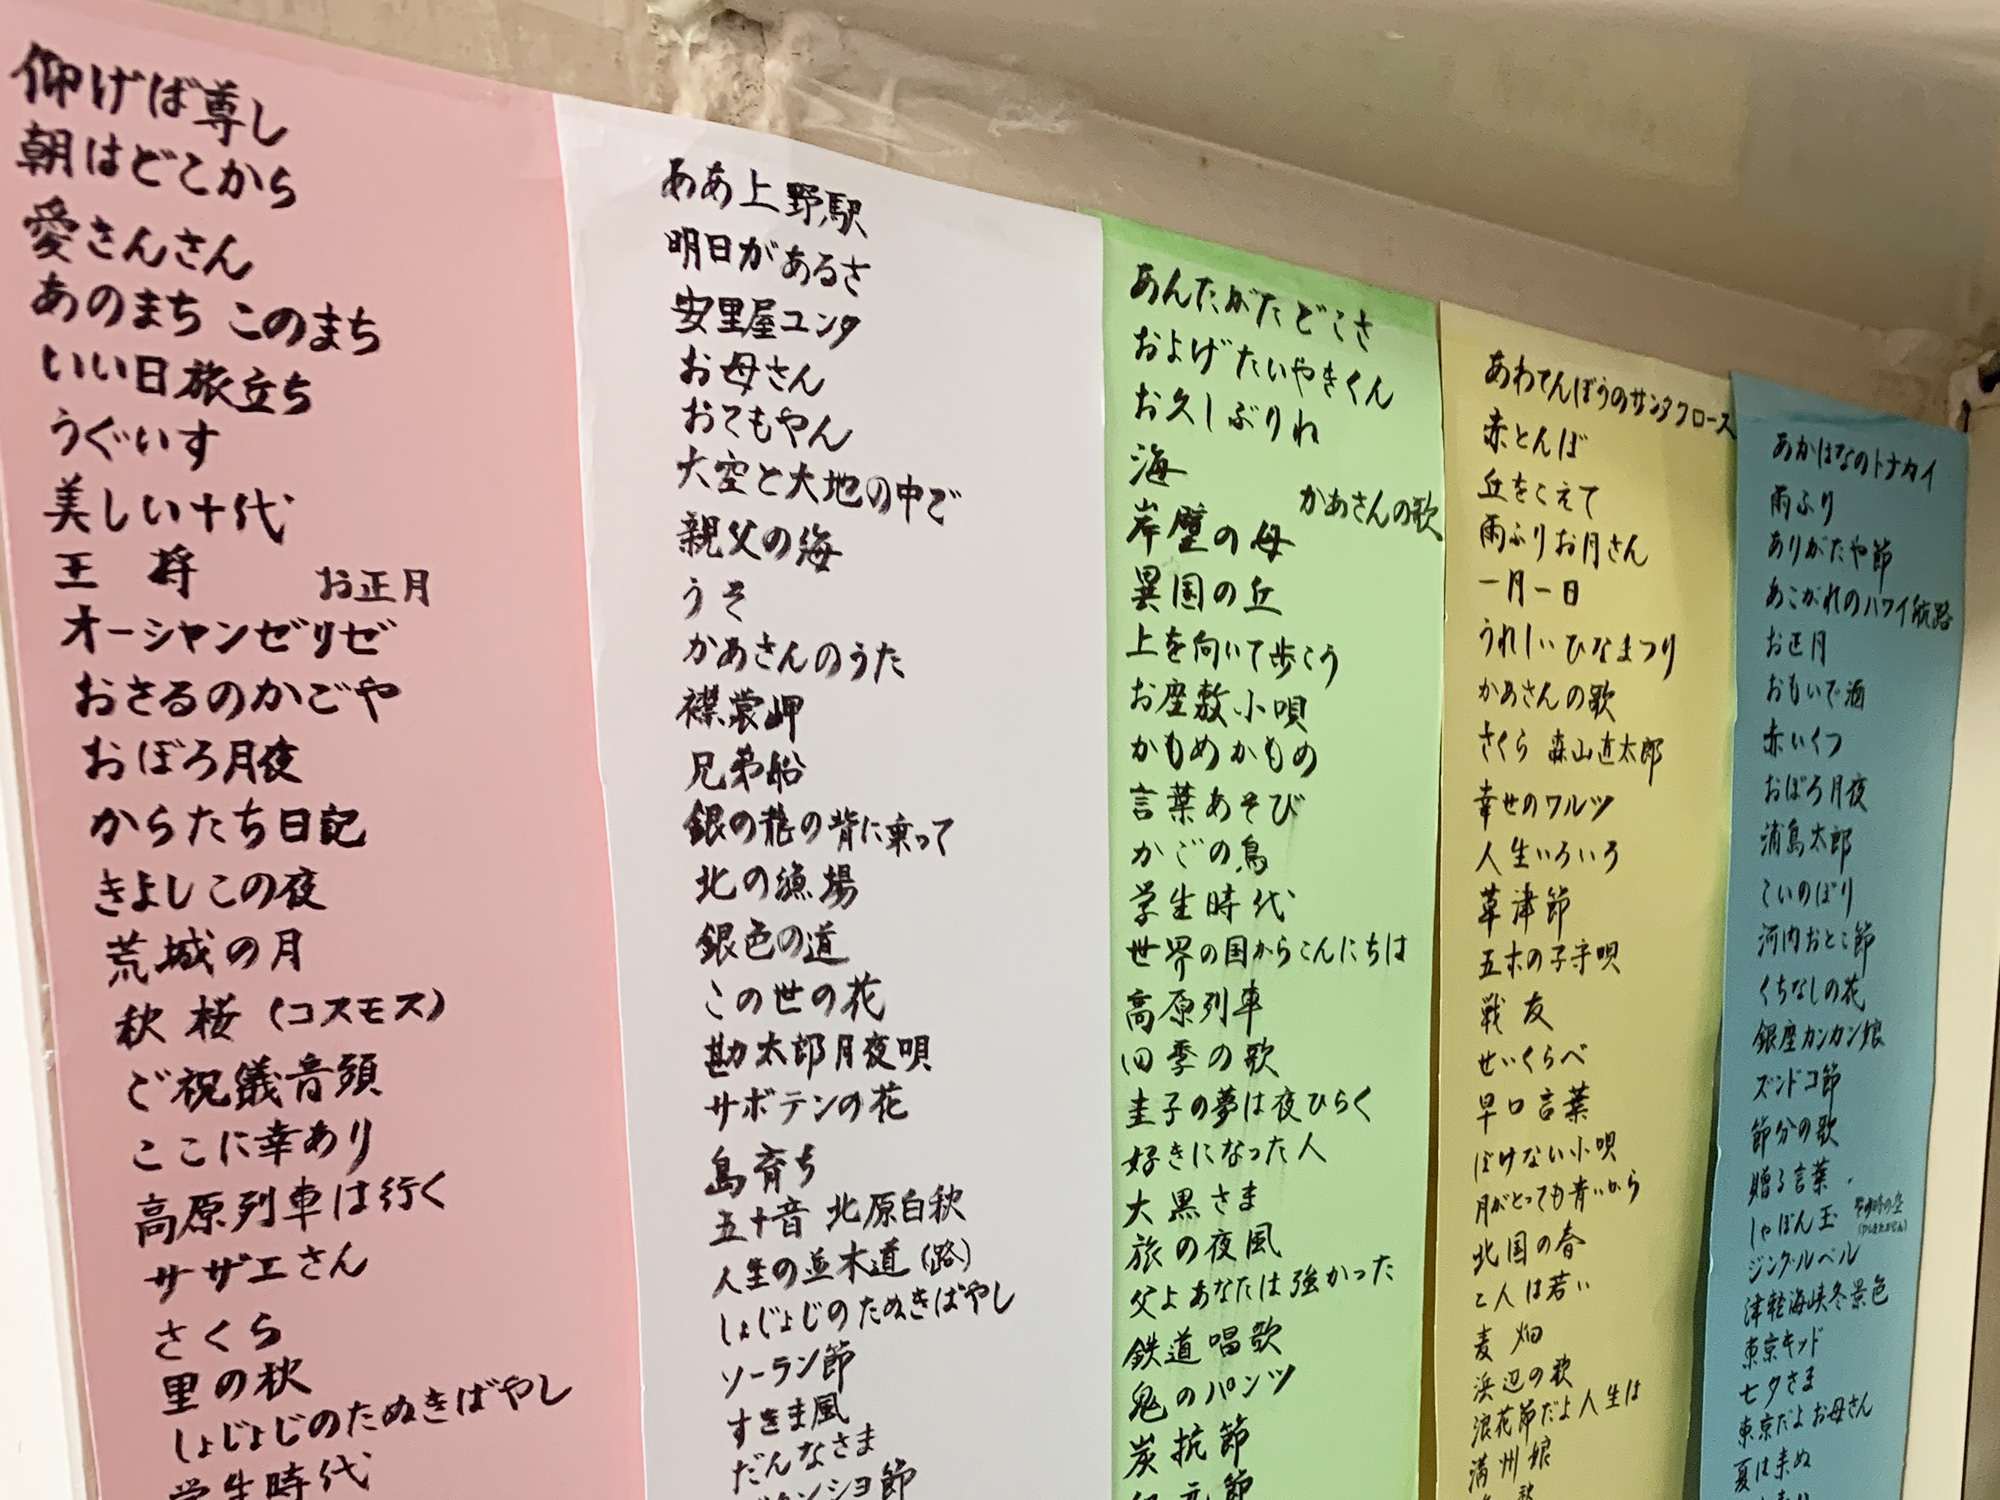 仰げば尊し
朝はどこから
愛さんさん
あのまち このまち
いい日旅立ち
うぐいす
美しい十代
王 将 お正月
オーシャンゼリゼ
おさるのかごや
おぼろ月夜
からたち日記
きよしこの夜
荒城の月
秋桜(コスモス)
ご祝儀音頭
ここに幸あり
高原列車は行く
サザエさん
さくら
里の秋
しょじょじのたぬきばやし
学生時代
ああ上野駅
明日があるさ
安里屋ユンタ
お母さん
おてもやん
大空と大地の中で
親父の海
うそ
かあさんのうた
襟裳岬
兄弟船
銀の龍の背に乗って
北の漁場
銀色の道
この世の花
勘太郎月夜唄
サボテンの花
島育ち
五十音 北原白秋
人生の並木道(路)
しょじょじのたぬきばやし
ソーラン節
すきま風
だんなさま
ンショ節
あんたがたどこさ
およげたいやきくん
お久しぶりね
海
かあさんの歌
岸壁の母
異国の丘
上を向いて歩こう
お座敷小唄
かもめかもめ
言葉あそび
かごの鳥
学生時代
世界の国からこんにちは
高原列車
四季の歌
圭子の夢は夜ひらく
好きになった人
大黒さま
旅の夜風
父よあなたは強かった
鉄道唱歌
鬼のパンツ
炭抗節
元節
あわてんぼうのサンタクロース
赤とんぼ
丘をこえて
雨ふりお月さん
一月一日
うれしいひなまつり
かあさんの歌
さくら 森山直太郎
幸せのワルツ
人生いろいろ
草津節
五木の子守唄
戦友
せいくらべ
早口言葉
ぼけない小唄
月がとっても青いから
北国の春
二人は若い
麦畑
浜辺の歌
浪花節だよ人生は
満州娘
歌
あかはなのトナカイ
雨ふり
ありがたや節
あこがれのハワイ航路
お正月
おもいで酒
赤いくつ
おぼろ月夜
浦島太郎
こいのぼり
河内おとこ節
くちなしの花
銀座カンカン娘
ズンドコ節
節分の歌
贈る言葉
しゃぼん玉
ジングルベル
津軽海峡冬景色
東京キッド
七夕さま
東京だよお母さん
夏は来ぬ